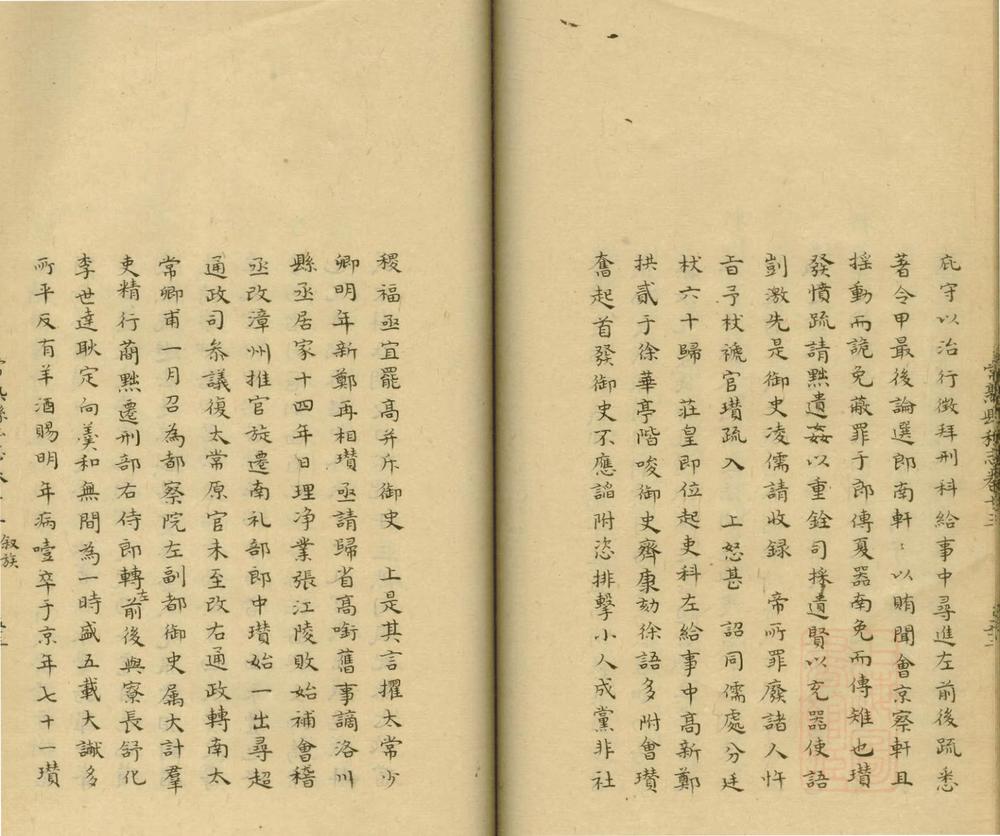 庇守以治行徵拜刑科給事中尋進左前後疏悉
著令甲最後論選郎南軒:以賄聞會京察軒且
揺動而詭免蔽罪于郎傅夏器南免而傅雉也瓚
發憤疏請黜遺姦以重銓司採遺賢以充器使語
剴激先是御史凌儒請收録 帝所罪廢諸人忤
旨予杖褫官瓚疏入 上怒甚 詔同儒處分廷
杖六十歸 莊皇即位起吏科左給事中高新鄭
拱貳于徐華亭階唆御史齊康劾徐語多附會瓚
奮起首發御史不應謟附恣排擊小人成黨非社
稷福亟宜罷高并斥御史 上是其言擢太常少
卿明年新鄭再相瓚亟請歸省高啣舊事謫洛川
縣丞居家十四年日理净業張江陵敗始補會稽
丞改漳州推官旋遷南礼部郎中瓚始一出尋超
通政司叅議復太常原官未至改右通政轉南太
常卿甫一月召為都察院左副都御史属大計羣
吏精行蕳黜遷刑部右侍郎轉左前後與寮長舒化
李世達耿定向羙和無間為一時盛五載大讞多
所平反有羊酒賜明年病噎卒于京年七十一瓚
叙族